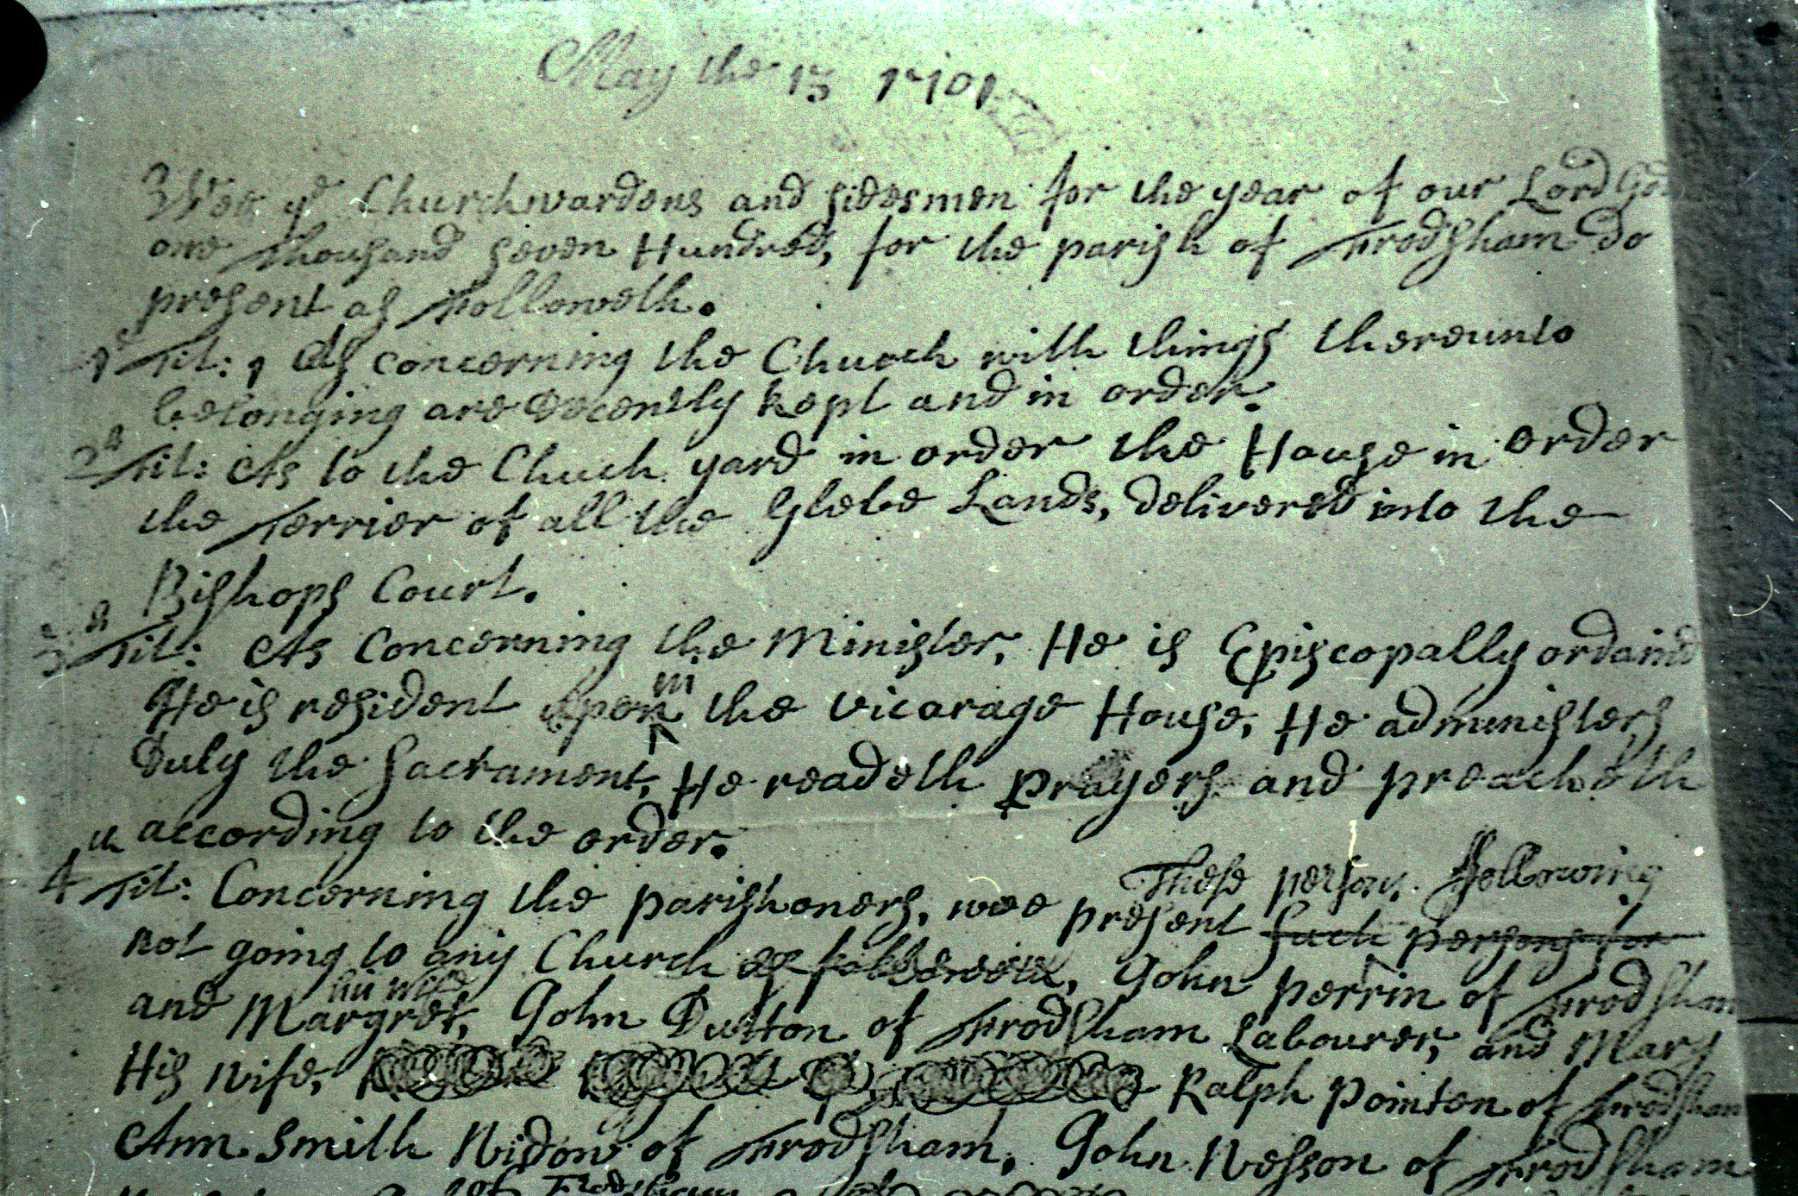 May the 13 1701
Wee ye Churchwardens and sidesmen for the year of our Lord God
one thousand seven Hundred, for the parish of Frodsham do
present as Followeth.
1st Tit: As concerning the Church with things thereunto
belonging are decently kept and in order.
2d Tit: As to the Chuch yard in order the House in order
the Terrier of all the Glebe Lands, delivered into the
Bishops Court.
3d Tit: As Concerning the Minister, He is Episcopally ordaind
He is resident upon in the vicarage House, He administers
Duly the Sacrament, He readeth prayers and preacheth
according to the order.
These persons Following
4th Tit: Concerning the parishoners, wee present such persons for
not going to any Church as followeth, John perrin of Frodsham
his wife
and Margret, John Dutton of Frodsham Labourer, and Mary
His wife, Ralph Pointon of Frodsham
Ann Smith Widow of Frodsham, John Wesson of Frodsham